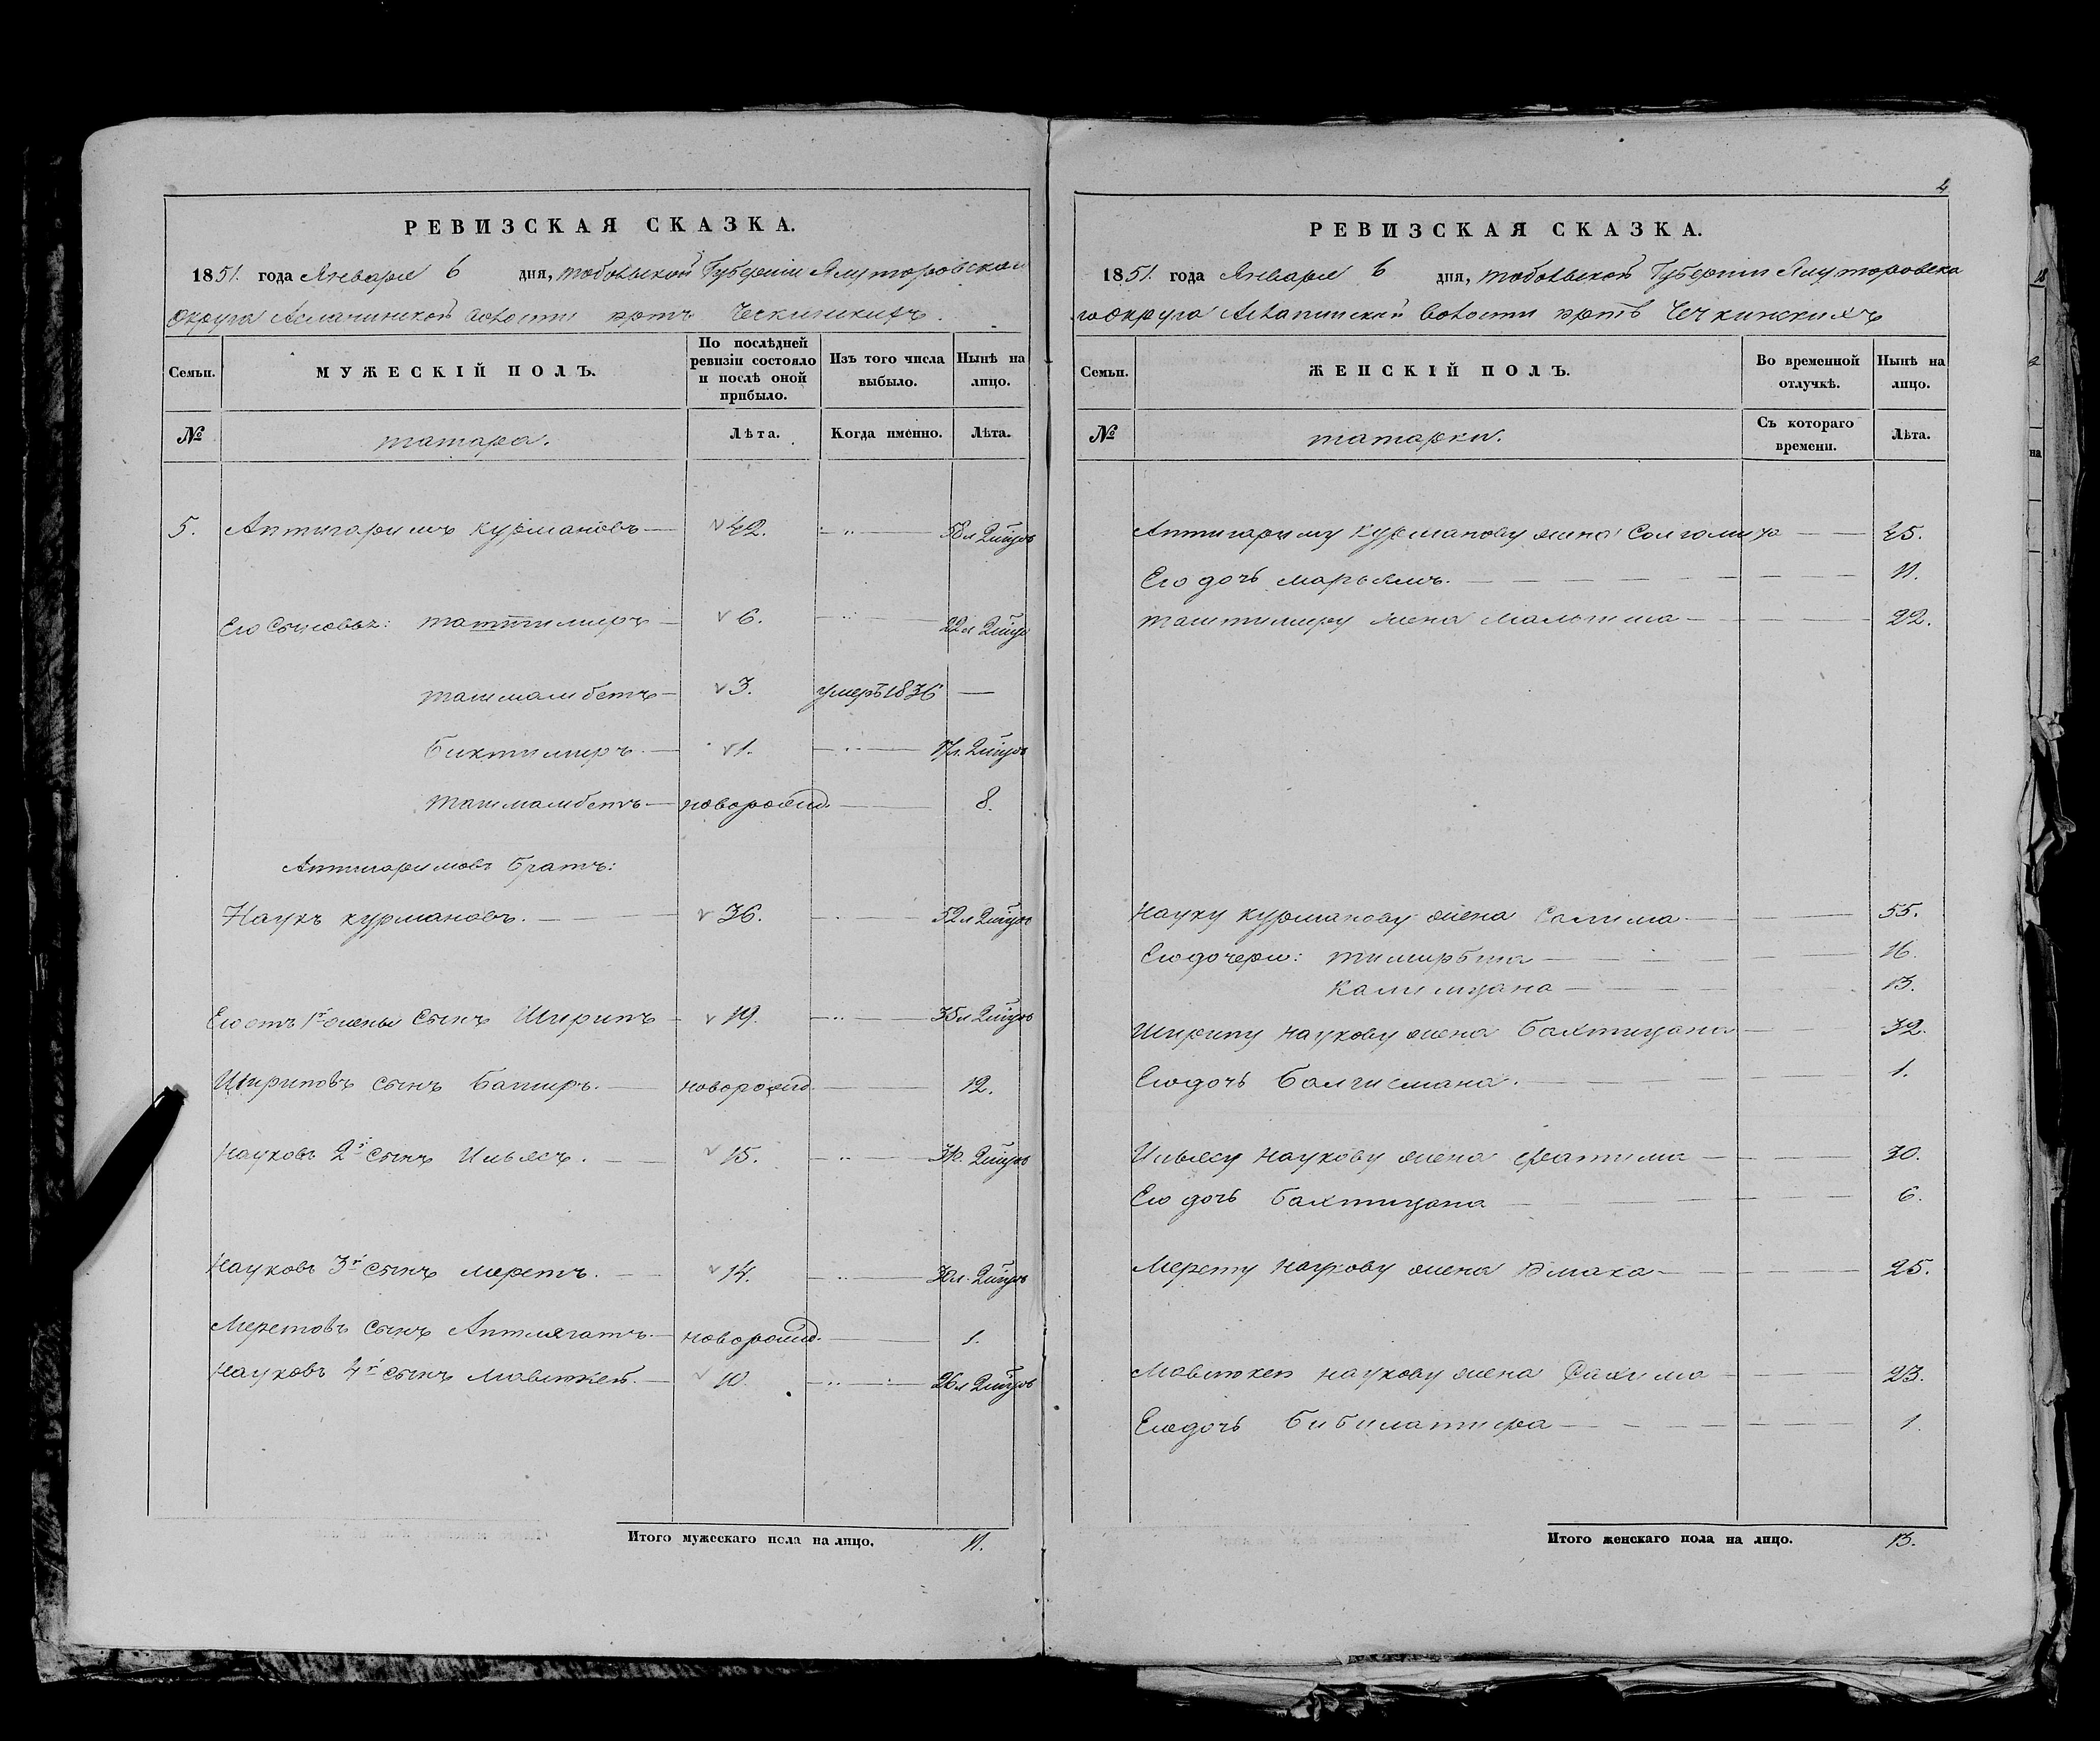 РЕВИЗСКАЯ СКАЗКА.
1851. года Января 6 дня, Тобольской Губернии Ялуторовской
Округа волости юртъ Чечкинскихъ.
Семьи.
МУЖЕСКІЙ ПОЛЪ.
По послѣдней ревизіи состояло и послѣ оной прибыло.
Изъ того числа выбыло.
Нынѣ на лицо.
№
татара.
Лѣта.
Когда именно.
Лѣта.
5. Аптигаримъ Курмановъ — 42. — 58 л 2 мѣсяц
Его Сыновья: Таштимиръ — 6. — 22 л 2 мѣсяц
Ташмамбетъ — 3. умеръ 1836 —
Биктимиръ — 1. — 17 л. 2 мѣсяц
Ташмамбетъ — новорожд. — 8.
Аптигаримовъ братъ:
Наукъ Курмановъ. — 36. — 52 л 2 мѣсяц
Его отъ 1й жены сынъ Ширипъ — 19. — 35 л 2 мѣсяц
Шириповъ сынъ Баширъ. — новорожд. — 12.
Науковъ 2й сынъ Ильясъ. — 15. — 31 л. 2 мѣсяц
Науковъ 3й сынъ Меретъ. — 14. — 30 л. 2 мѣсяц
Меретовъ сынъ Аптлягатъ — новорожд. — 1.
Науковъ 4й сынъ Мавлюкей. — 10. — 26 л 2 мѣсяц
Итого мужескаго пола на лицо. 11.
4
РЕВИЗСКАЯ СКАЗКА.
1851. года Января 6 дня, Тобольской Губернии Ялуторовска
го Округа волости юртъ Чечкинскихъ
Семьи.
ЖЕНСКІЙ ПОЛЪ.
Во временной отлучкѣ.
Нынѣ на лицо.
№
татарки.
Съ котораго времени.
Лѣта.
Аптигариму Курманову жена — 45.
Его дочь Марьямъ. — 11.
Таштимиру жена — 22.
Науку Курманову жена Салима — 55.
Его дочери: Тимирбига — 16.
Калимзяна — 13.
Ширипу Наукову жена Бахтизяна — 32.
Его дочь — 1.
Ильясу Наукову жена Фатима — 30.
Его дочь Бахтизяна — 6.
Мерету Наукову жена — 25.
Мавлюкею Наукову жена — 23.
Его дочь — 1.
Итого женскаго пола на лицо. 13.